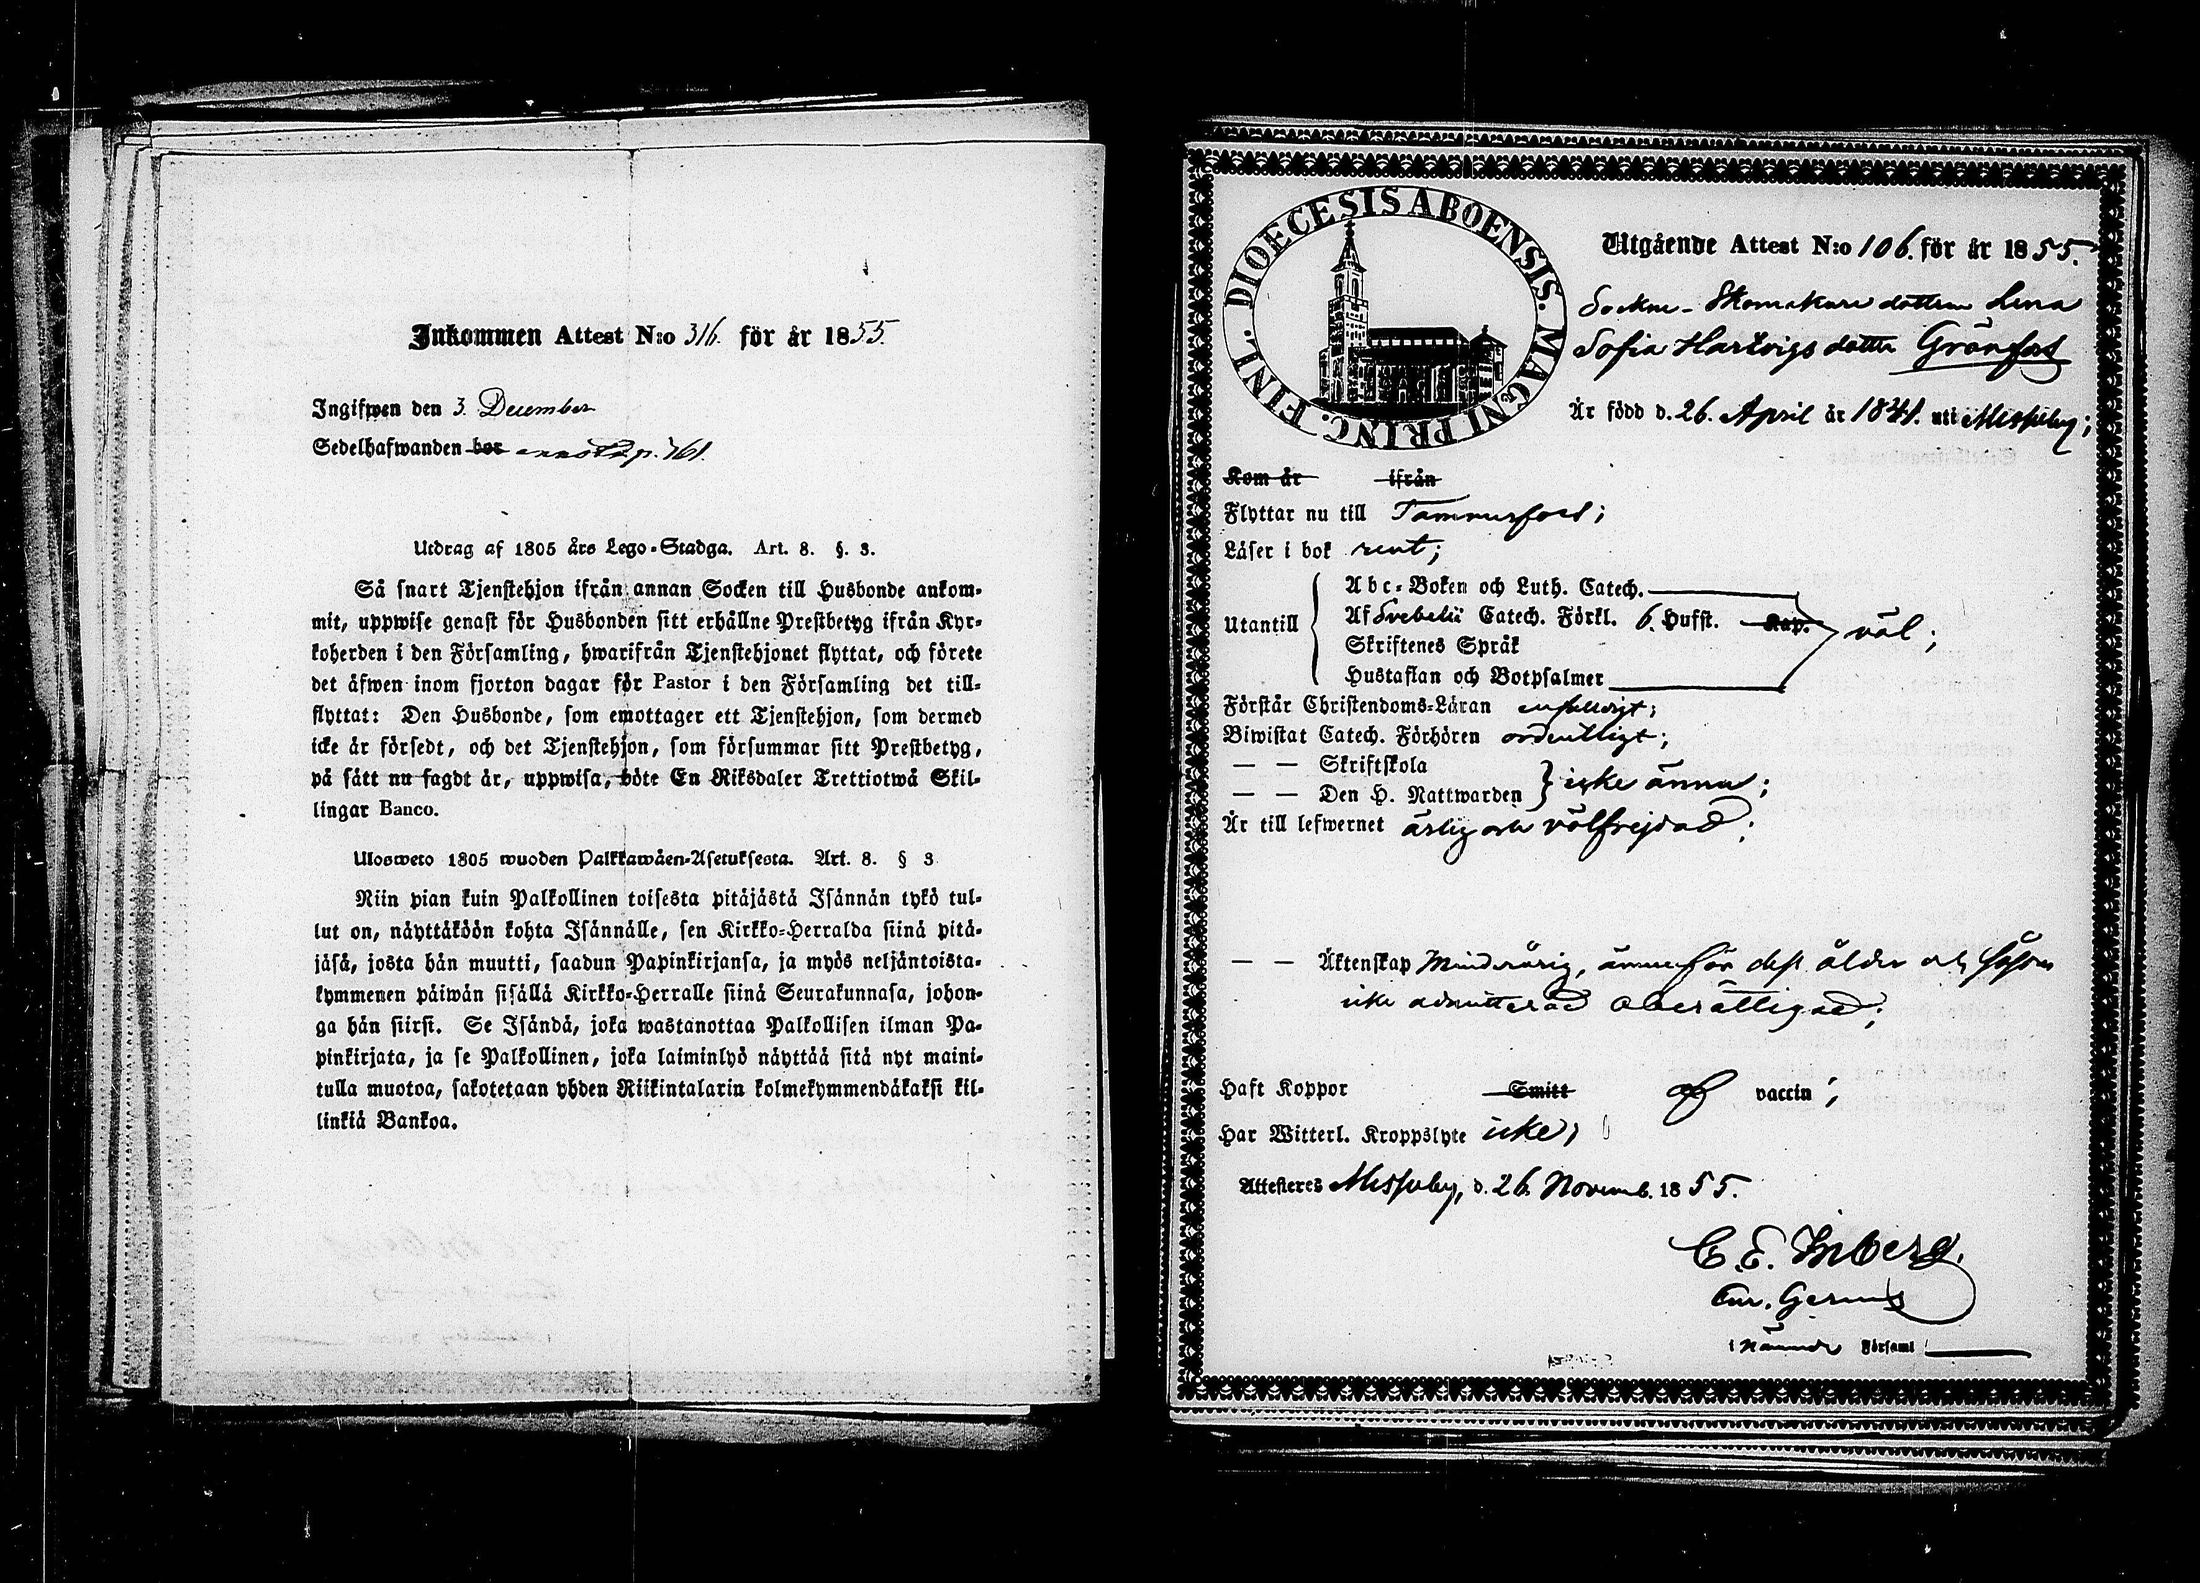 Inkommen Attest N:o 316. för år 1855.
Ingifwen den 3. December
Sedelhafwanden bor p. 761.
Utdrag af 1805 års Lego-Stadga. Art. 8. §. 3.
Så snart Tjenstehjon ifrån annan Socken till Husbonde ankom-
mit, uppwise genast för Husbonden sitt erhållne Prestbetyg ifrån Kyr-
koherden i den Församling, hwarifrån Tjenstehjonet flyttat, och förete
det äfwen inom fjorton dagar för Pastor i den Församling det till-
flyttat: Den Husbonde, som emottager ett Tjenstehjon, som dermed
icke är försedt, och det Tjenstehjon, som försummar sitt Prestbetyg,
på sätt nu sagdt är, uppwisa, böte En Riksdaler Trettiotwå Skil-
lingar Banco.
Ulosweto 1805 wuoden Palkkawäen-Asetuksesta. Art. 8. § 3
Niin pian kuin Palkollinen toisesta pitäjästä Isännän tykö tul-
lut on, näyttäköön kohta Isännälle, sen Kirkko-Herralda siinä pitä-
jäsä, josta hän muutti, saadun Papinkirjansa, ja myös neljäntoista-
kymmenen päiwän sisällä Kirkko-Herralle siinä Seurakunnasa, johon-
ga hän siirsi. Se Isändä, joka wastanottaa Palkollisen ilman Pa-
pinkirjata, ja se Palkollinen, joka laiminlyö näyttää sitä nyt maini-
tulla muotoa, sakotetaan yhden Riikintalarin kolmekymmendäkaksi kil-
linkiä Bankoa.
DIOECESIS ABOENSIS. MAGNI PRINC. FINL.
Utgående Attest N:o 106. för år 1855.
Sockne-Skomakare dottren Lena
Sofia Hartvigs dotter Grönfors
Är född d. 26. April år 1841. uti Messuby;
Kom år ifrån
Flyttar nu till Tammerfors;
Läser i bok rent;
Utantill
Abc-Boken och Luth. Catech.
Af Svebelii Catech. Förkl. 6. Hufst. Kap. väl;
Skriftenes Språk
Hustaflan och Botpsalmer
Förstår Christendoms-Läran enfaldigt;
Biwistat Catech. Förhören ordentligt;
— — Skriftskola
— — Den H. Nattwarden icke ännu;
Är till lefwernet ärlig och välfrejdad;
— — Äktenskap Minderårig, ännu för dess ålder och såsom
icke admitterad oberättigad;
Haft Koppor Smitt af vaccin;
Har Witterl. Kroppslyte icke;
Attesteres Messuby, d. 26. Novemb. 1855.
C. E. Inberg.
i nämnde Församl